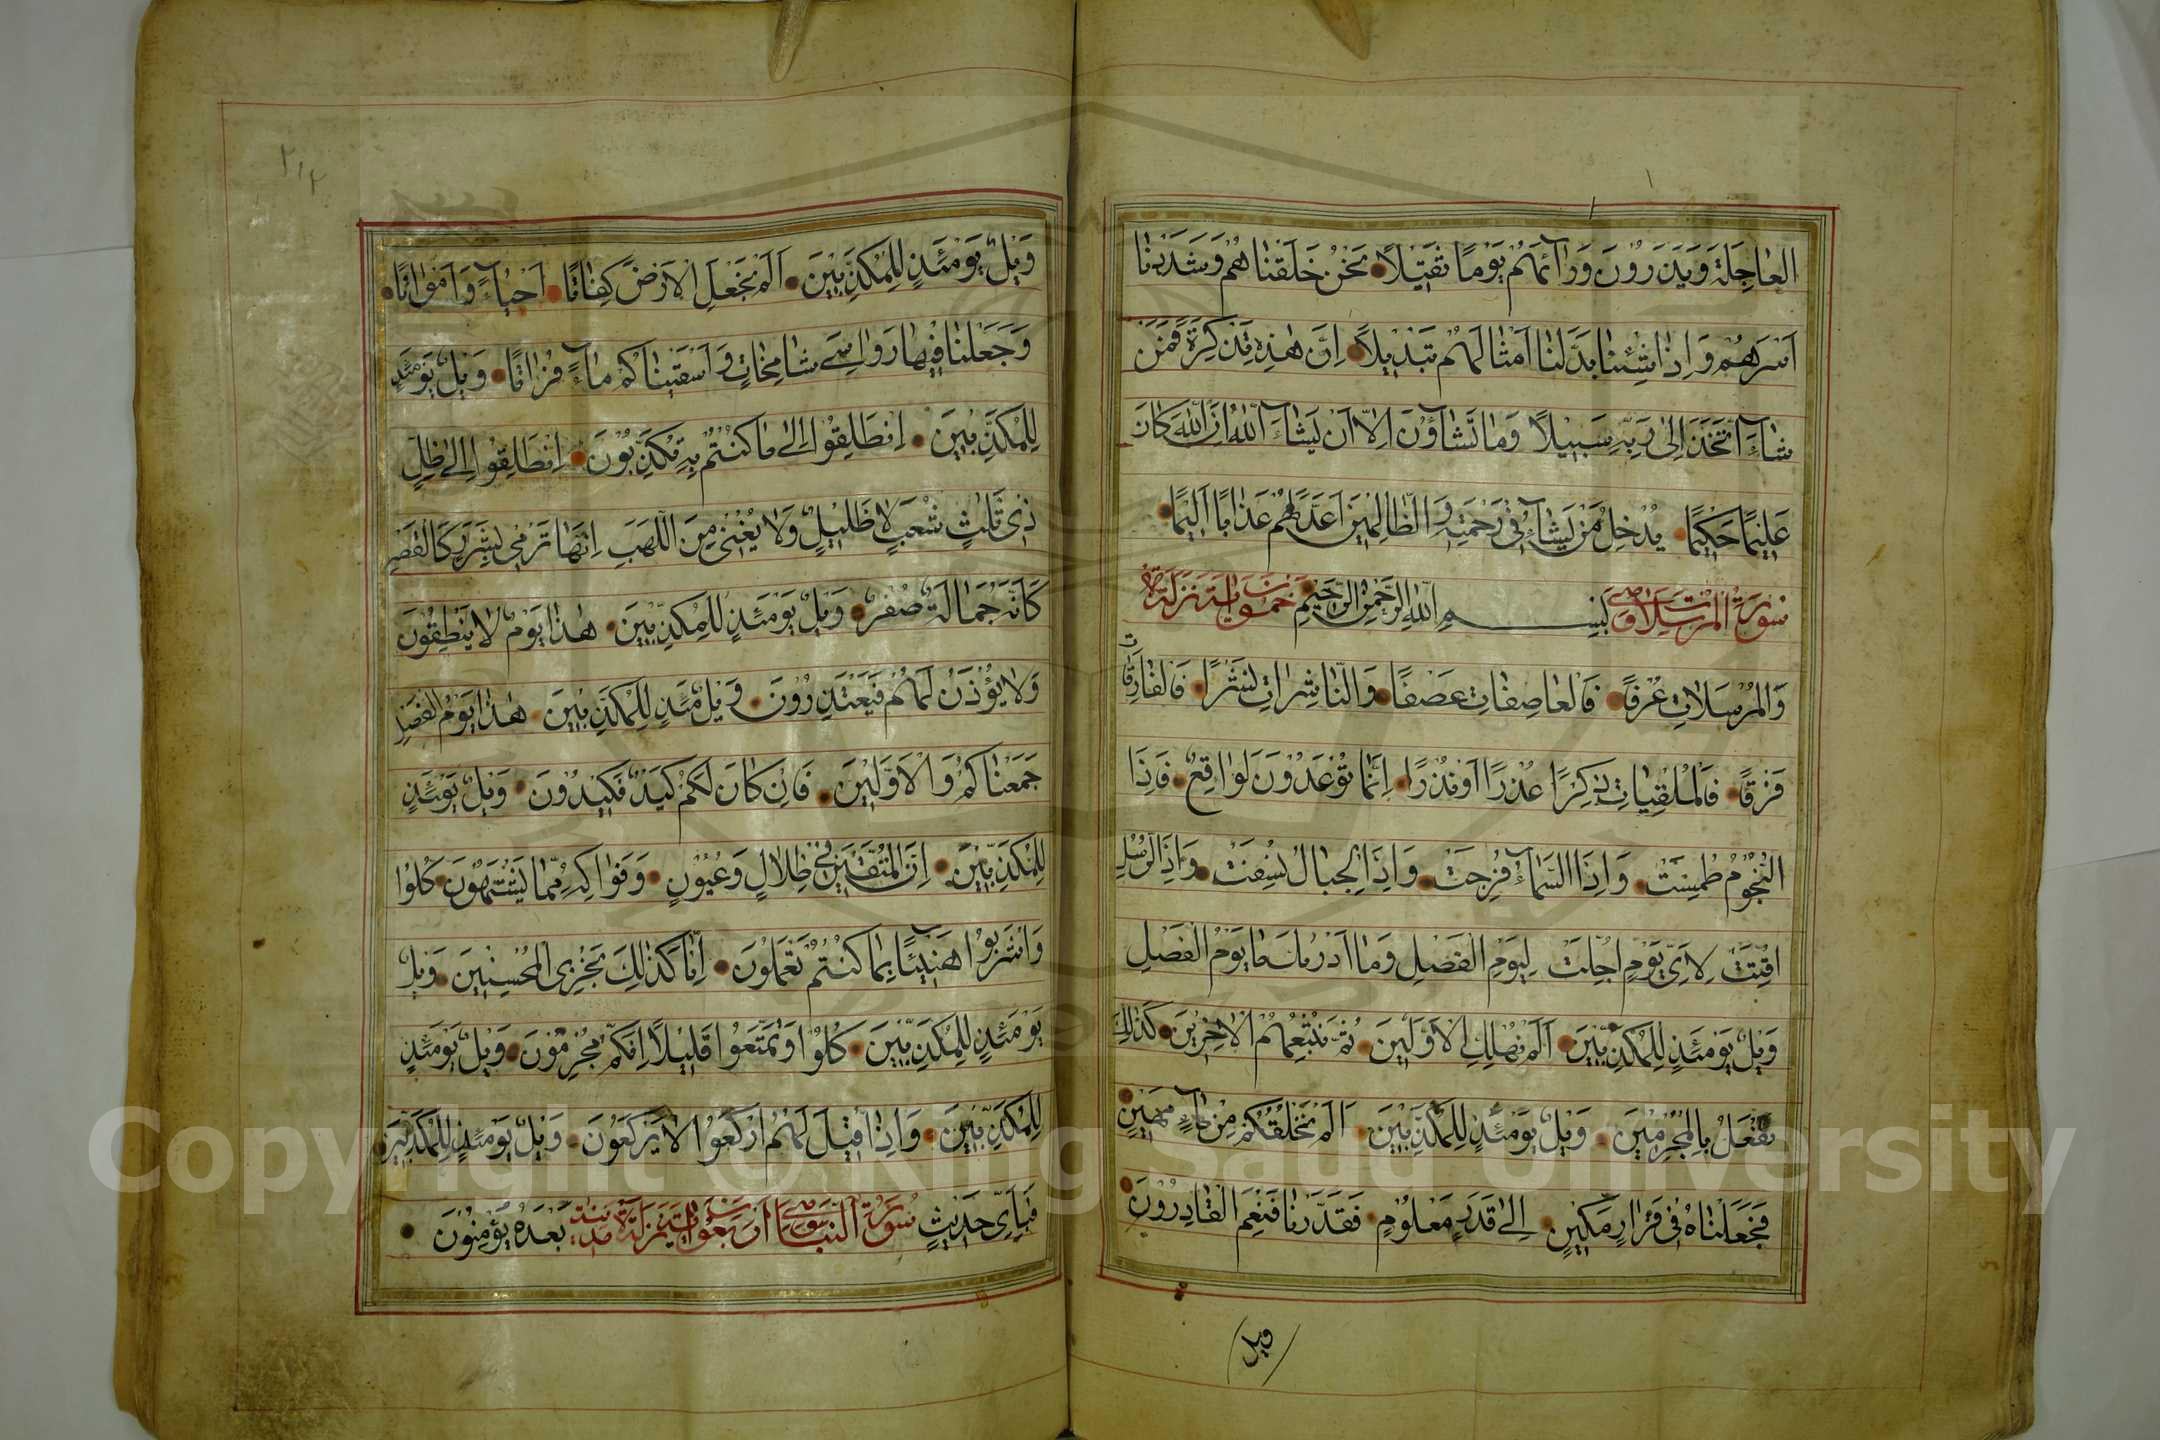 العاجلة ويذرون ورائهم يوما ثقيلا نحن خلقناهم وشددنا
اسرهم واذا شئنا بدلنا امثالهم تبديلا ان هذه تذكرة فمن
شاء اتخذ الى ربه سبيلا وما تشاؤن الا ان يشاء الله ان الله كان
عليما حكيما يدخل من يشاء في رحمته والظالمين اعد لهم عذابا اليما
سورة المرسلات بسم الله الرحمن الرحيم خمسون اية نزلة
والمرسلات عرفا فالعاصفات عصفا والناشرات نشرا فالفارقات
فرقا فالملقيات ذكرا عذرا او نذرا انما توعدون لواقع فاذا
النجوم طمست واذا السماء فرجت واذا الجبال نسفت واذا الرسل
اقتت لاي يوم اجلت ليوم الفصل وما ادريك ما يوم الفصل
ويل يومئذ للمكذبين الم نهلك الاولين ثم نتبعهم الاخرين كذلك
نفعل بالمجرمين ويل يومئذ للمكذبين الم نخلقكم من ماء مهين
فجعلناه في قرار مكين الى قدر معلوم فقدرنا فنعم القادرون
ويل
٢١٢
ويل يومئذ للمكذبين الم نجعل الارض كفاتا احياء وامواتا
وجعلنا فيها رواسي شامخات واسقيناكم ماء فراتا ويل يومئذ
للمكذبين انطلقوا الى ما كنتم به تكذبون انطلقوا الى ظل
ذي ثلث شعب لا ظليل ولا يغني من اللهب انها ترمي بشرر كالقصر
كانه جمالة صفر ويل يومئذ للمكذبين هذا يوم لا ينطقون
ولا يؤذن لهم فيعتذرون ويل مئذ للمكذبين هذا يوم الفصل
جمعناكم والاولين فان كان لكم كيد فكيدون ويل يومئذ
للمكذبين ان المتقين في ظلال وعيون وفواكه مما يشتهون كلوا
واشربوا هنيئا بما كنتم تعملون انا كذلك نجزي المحسنين ويل
يومئذ للمكذبين كلوا وتمتعوا قليلا انكم مجرمون ويل يومئذ
للمكذبين واذا قيل لهم اركعوا لا يركعون ويل يومئذ للمكذبين
فباي حديث سورة النبا اربعون اية نزلة بعده يؤمنون
Copyright © King Saud University